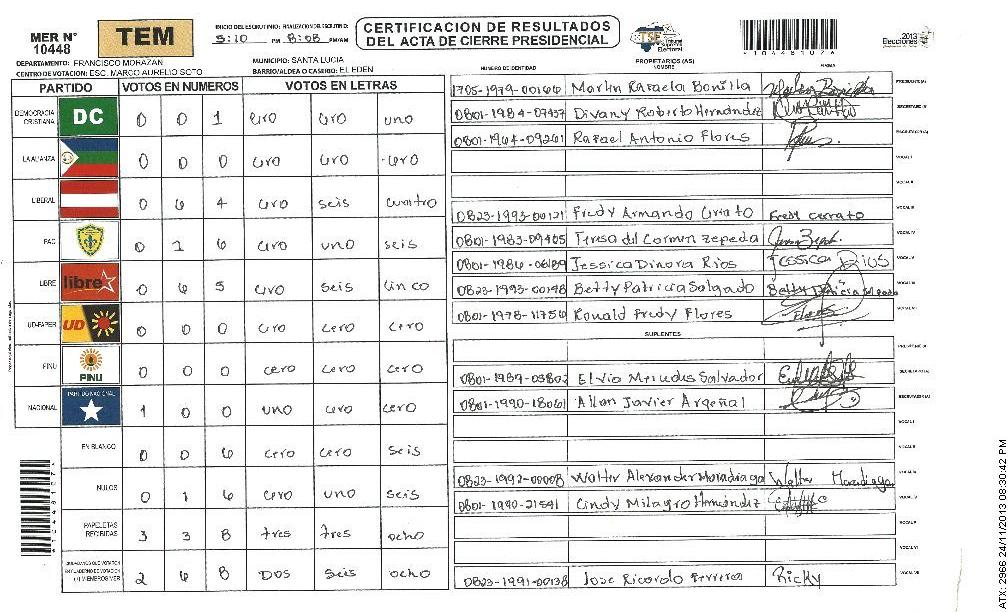 MER N° 10448
TEM
INICIO DEL ESCRUTINIO: FINALIZACION DEL ESCRUTINIO:
5:10 PM 8:08 PM/AM
CERTIFICACION DE RESULTADOS
DEL ACTA DE CIERRE PRESIDENCIAL
TSE
Supremo
Electoral
2013
Elecciones
DEPARTAMENTO: FRANCISCO MORAZAN
MUNICIPIO: SANTA LUCIA
CENTRO DE VOTACION: ESC. MARCO AURELIO SOTO
BARRIO/ALDEA O CASERIO: EL EDEN
PARTIDO VOTOS EN NUMEROS VOTOS EN LETRAS
DEMOCRACIA CRISTIANA DC 0 0 1 cero cero uno
LA ALIANZA 0 0 0 cero cero cero
LIBERAL 0 6 4 cero seis cuatro
PAC 0 1 6 cero uno seis
LIBRE libre 0 6 5 cero seis cinco
UD-FAPER UD 0 0 0 cero cero cero
PINU PINU 0 0 0 cero cero cero
NACIONAL PARTIDO NACIONAL 1 0 0 uno cero cero
EN BLANCO 0 0 6 cero cero seis
NULOS 0 1 6 cero uno seis
PAPELETAS RECIBIDAS 3 3 8 tres tres ocho
CIUDADANOS QUE VOTARON EN CUADERNO DE VOTACION (+) MIEMBROS MER 2 6 8 DOS seis ocho
NUMERO DE IDENTIDAD PROPIETARIOS (AS) NOMBRE FIRMA
Rafaela Bonilla PRESIDENTE(A)
Divany Roberto Hernandez SECRETARIO(A)
Rafael Antonio Flores ESCRUTADOR(A)
VOCAL I
VOCAL II
0823-1993-00121 Fredy Armando Cerrato Fredy cerrato VOCAL III
0801-1983-09405 Teresa del Carmen Zepeda VOCAL IV
0801-1986-06189 Jessica Dinora Rios Jessica Rios VOCAL V
0823-1993-00148 Betty Patricia Salgado Betty Patricia Salgado
Ronald Fredy Flores
SUPLENTES
PRESIDENTE(A)
0801-1989-03802 Elvia Salvador SECRETARIO(A)
0801-1990-18061 Allan Javier Argeñal ESCRUTADOR(A)
VOCAL I
VOCAL II
0823-1992-00008 Walter Alexander Moradiaga Walter Moradiaga
0801-1990-21541 Cindy Milagro Hernández
VOCAL V
VOCAL VI
0823-1991-00138 Jose Ricardo Ferrera Ricky
ATX: 2966 24/11/2013 08:30:42 PM